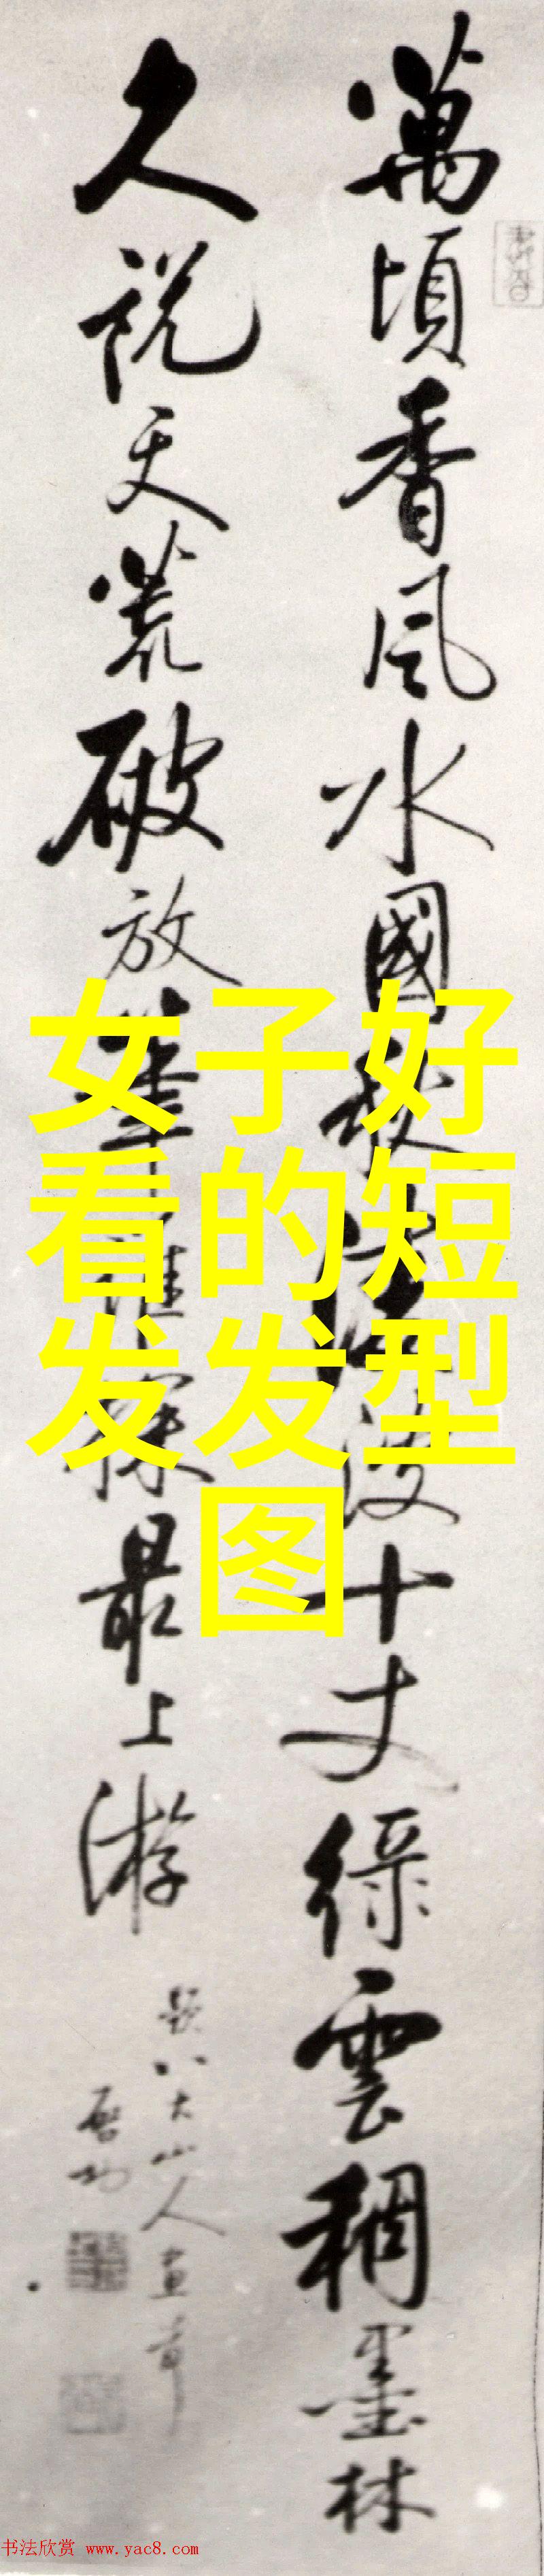 萬頃香風水國秋
漫十丈綠雲稠墨林
久說天荒破放筆
誰探最上游
題八大山人畫卷
啟功
女子好
看的短
发发型
图
书法欣赏 www.yac8.com